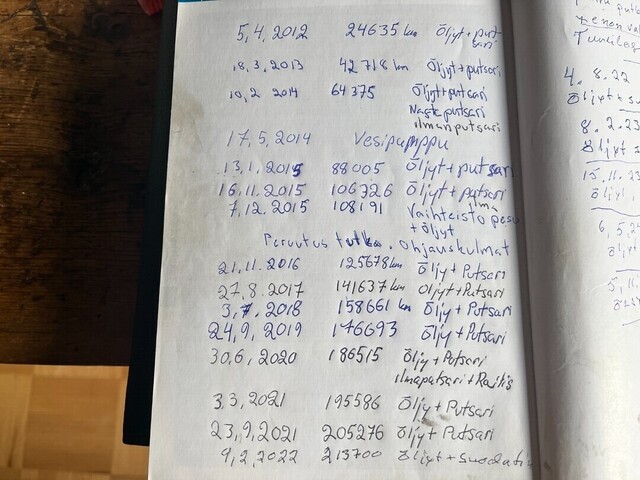 5.4.2012 24635 km Öljyt + put
sari
18.3.2013 42718 km Öljyt + putsari
10.2 2014 64375 Öljyt + putsari
Nasta putsari
ilman putsari
17.5.2014 Vesipumppu
13.1.2015 88005 Öljyt + putsari
16.11.2015 106326 Öljyt + putsari
ilma
7.12.2015 108191 Vaihteisto pesu
+ öljyt
Peruutus tutka. Ohjauskulmat
21.11.2016 125678 km Öljy + Putsari
27.8.2017 141637 km Öljyt + Putsari
3.7.2018 158661 km Öljy + Putsari
24.9.2019 176693 Öljy + Putsari
30.6.2020 186515 Öljy + Putsari
ilmaputsari +
3.3.2021 195586 Öljy + Putsari
23.9.2021 205276 Öljy + Putsari
9.2.2022 213700 Öljyt + suodatin
4.8.22
Öljyt + s
8.2.23
Öljyt s
15.11.23
Öljyt
6.5.24
öljyt
5.11.